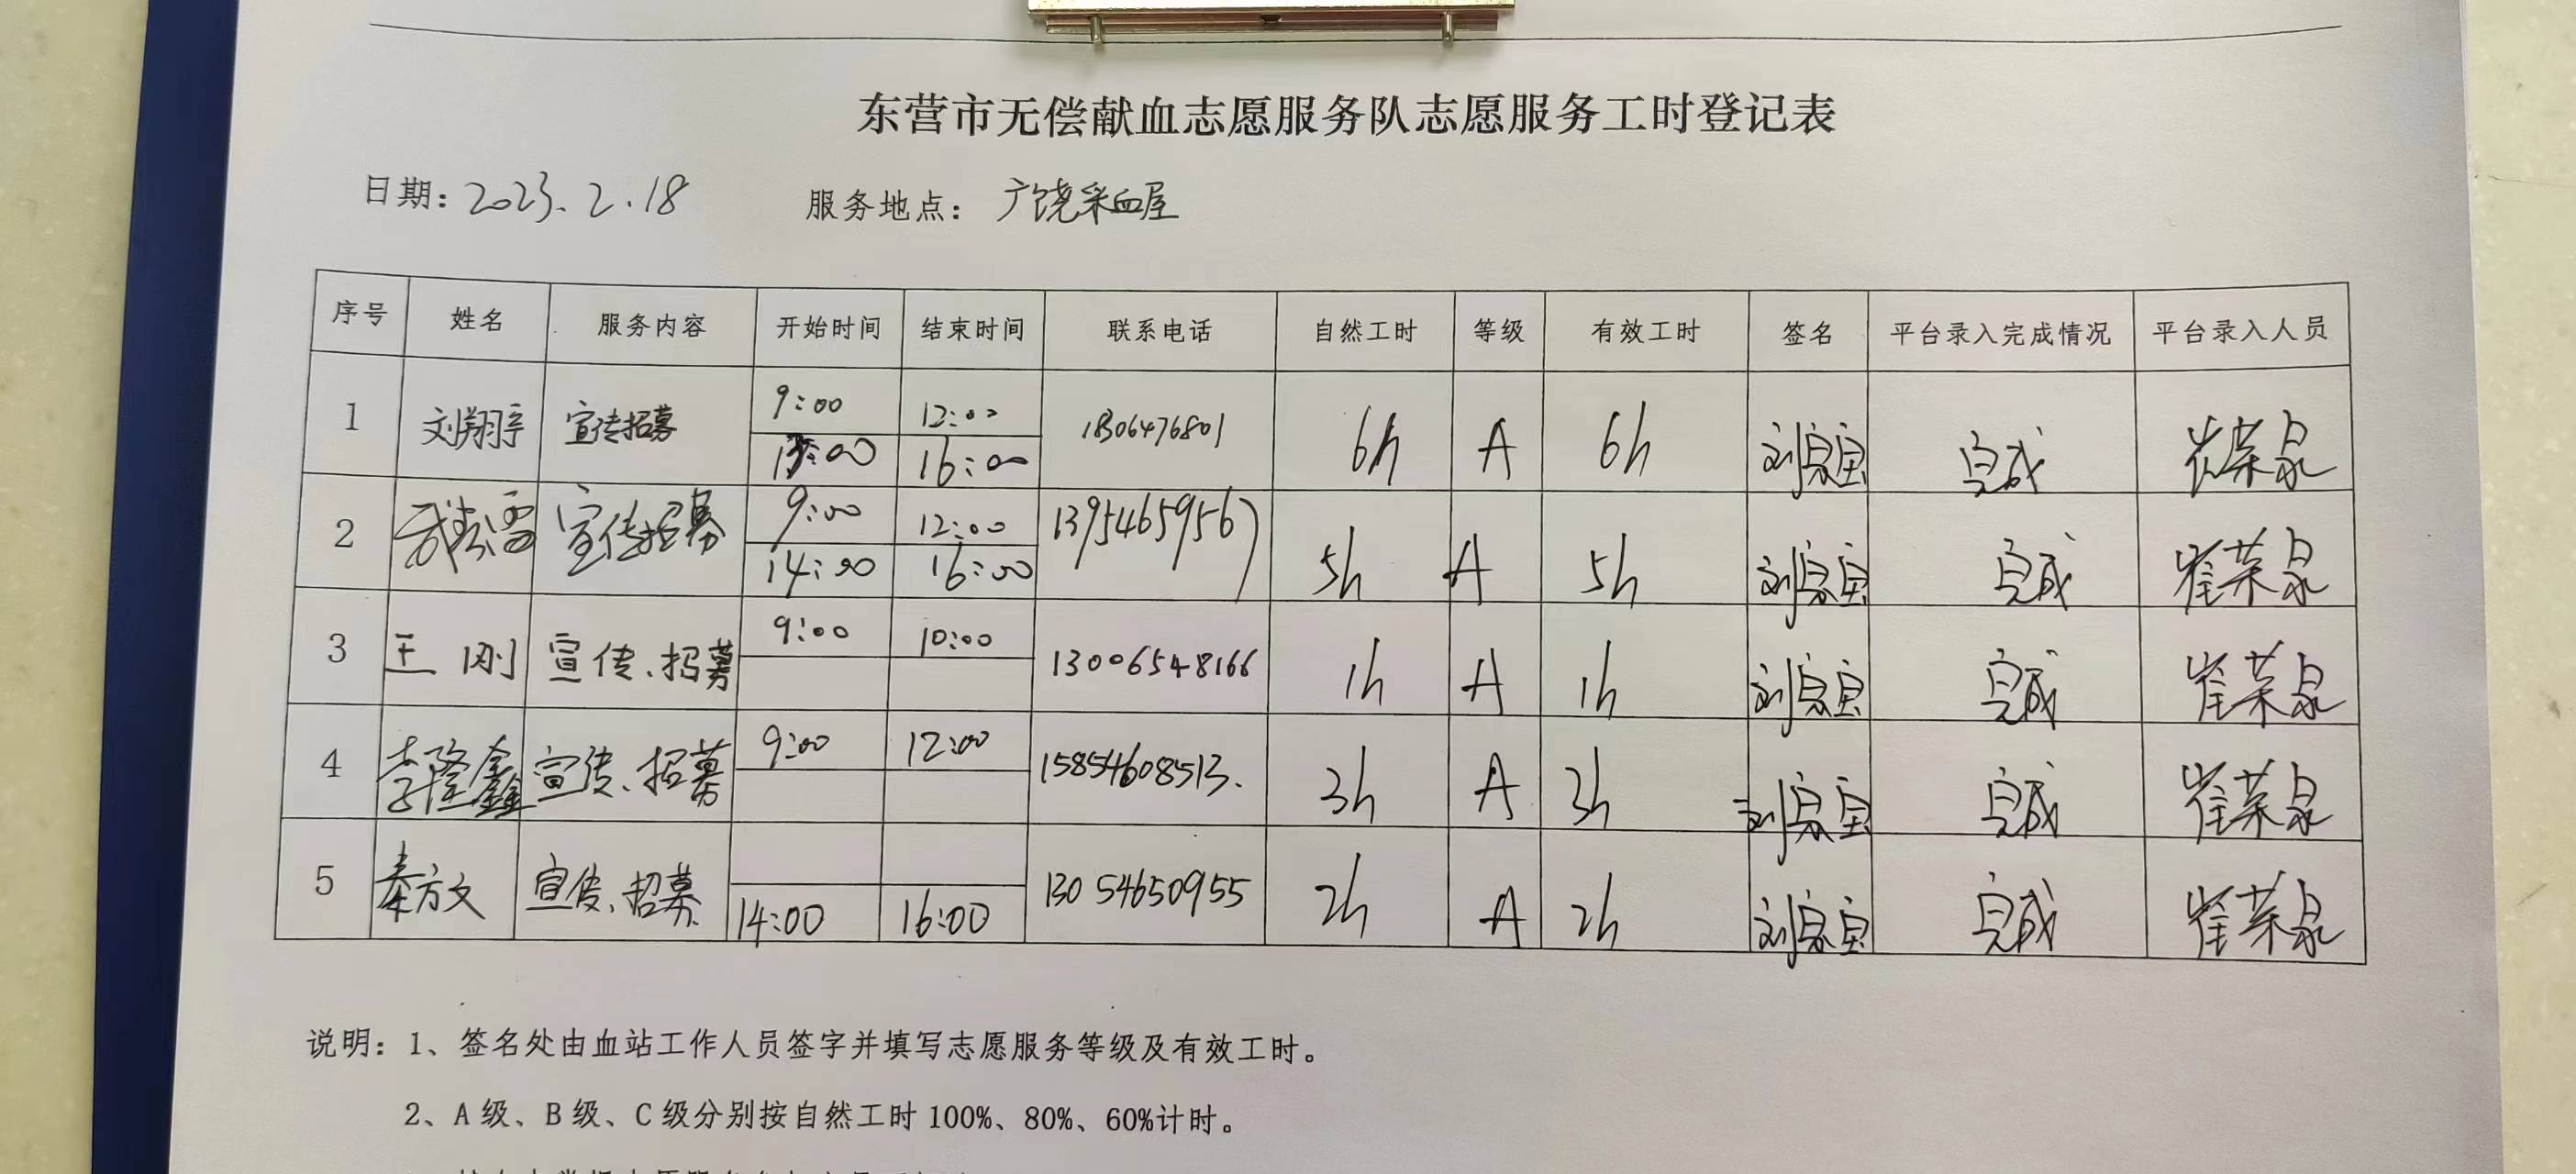 东营市无偿献血志愿服务队志愿服务工时登记表
日期：2023.2.18 服务地点：广饶采血屋
序号 姓名 服务内容 开始时间 结束时间 联系电话 自然工时 等级 有效工时 签名 平台录入完成情况 平台录入人员
1 刘翔宇 宣传招募 9:00 12:00 6h A 6h 完成 崔荣泉
13:00 16:00
2 宣传招募 9:00 12:00 13954659567 5h A 5h 完成 崔荣泉
14:00 16:00
3 王刚 宣传、招募 9:00 10:00 13006548166 1h A 1h 完成 崔荣泉
4 李隆鑫 宣传、招募 9:00 12:00 15854608513. 3h A 3h 完成 崔荣泉
5 秦方文 宣传、招募 13054650955 2h A 2h 完成 崔荣泉
14:00 16:00
说明：1、签名处由血站工作人员签字并填写志愿服务等级及有效工时。
2、A级、B级、C级分别按自然工时100%、80%、60%计时。